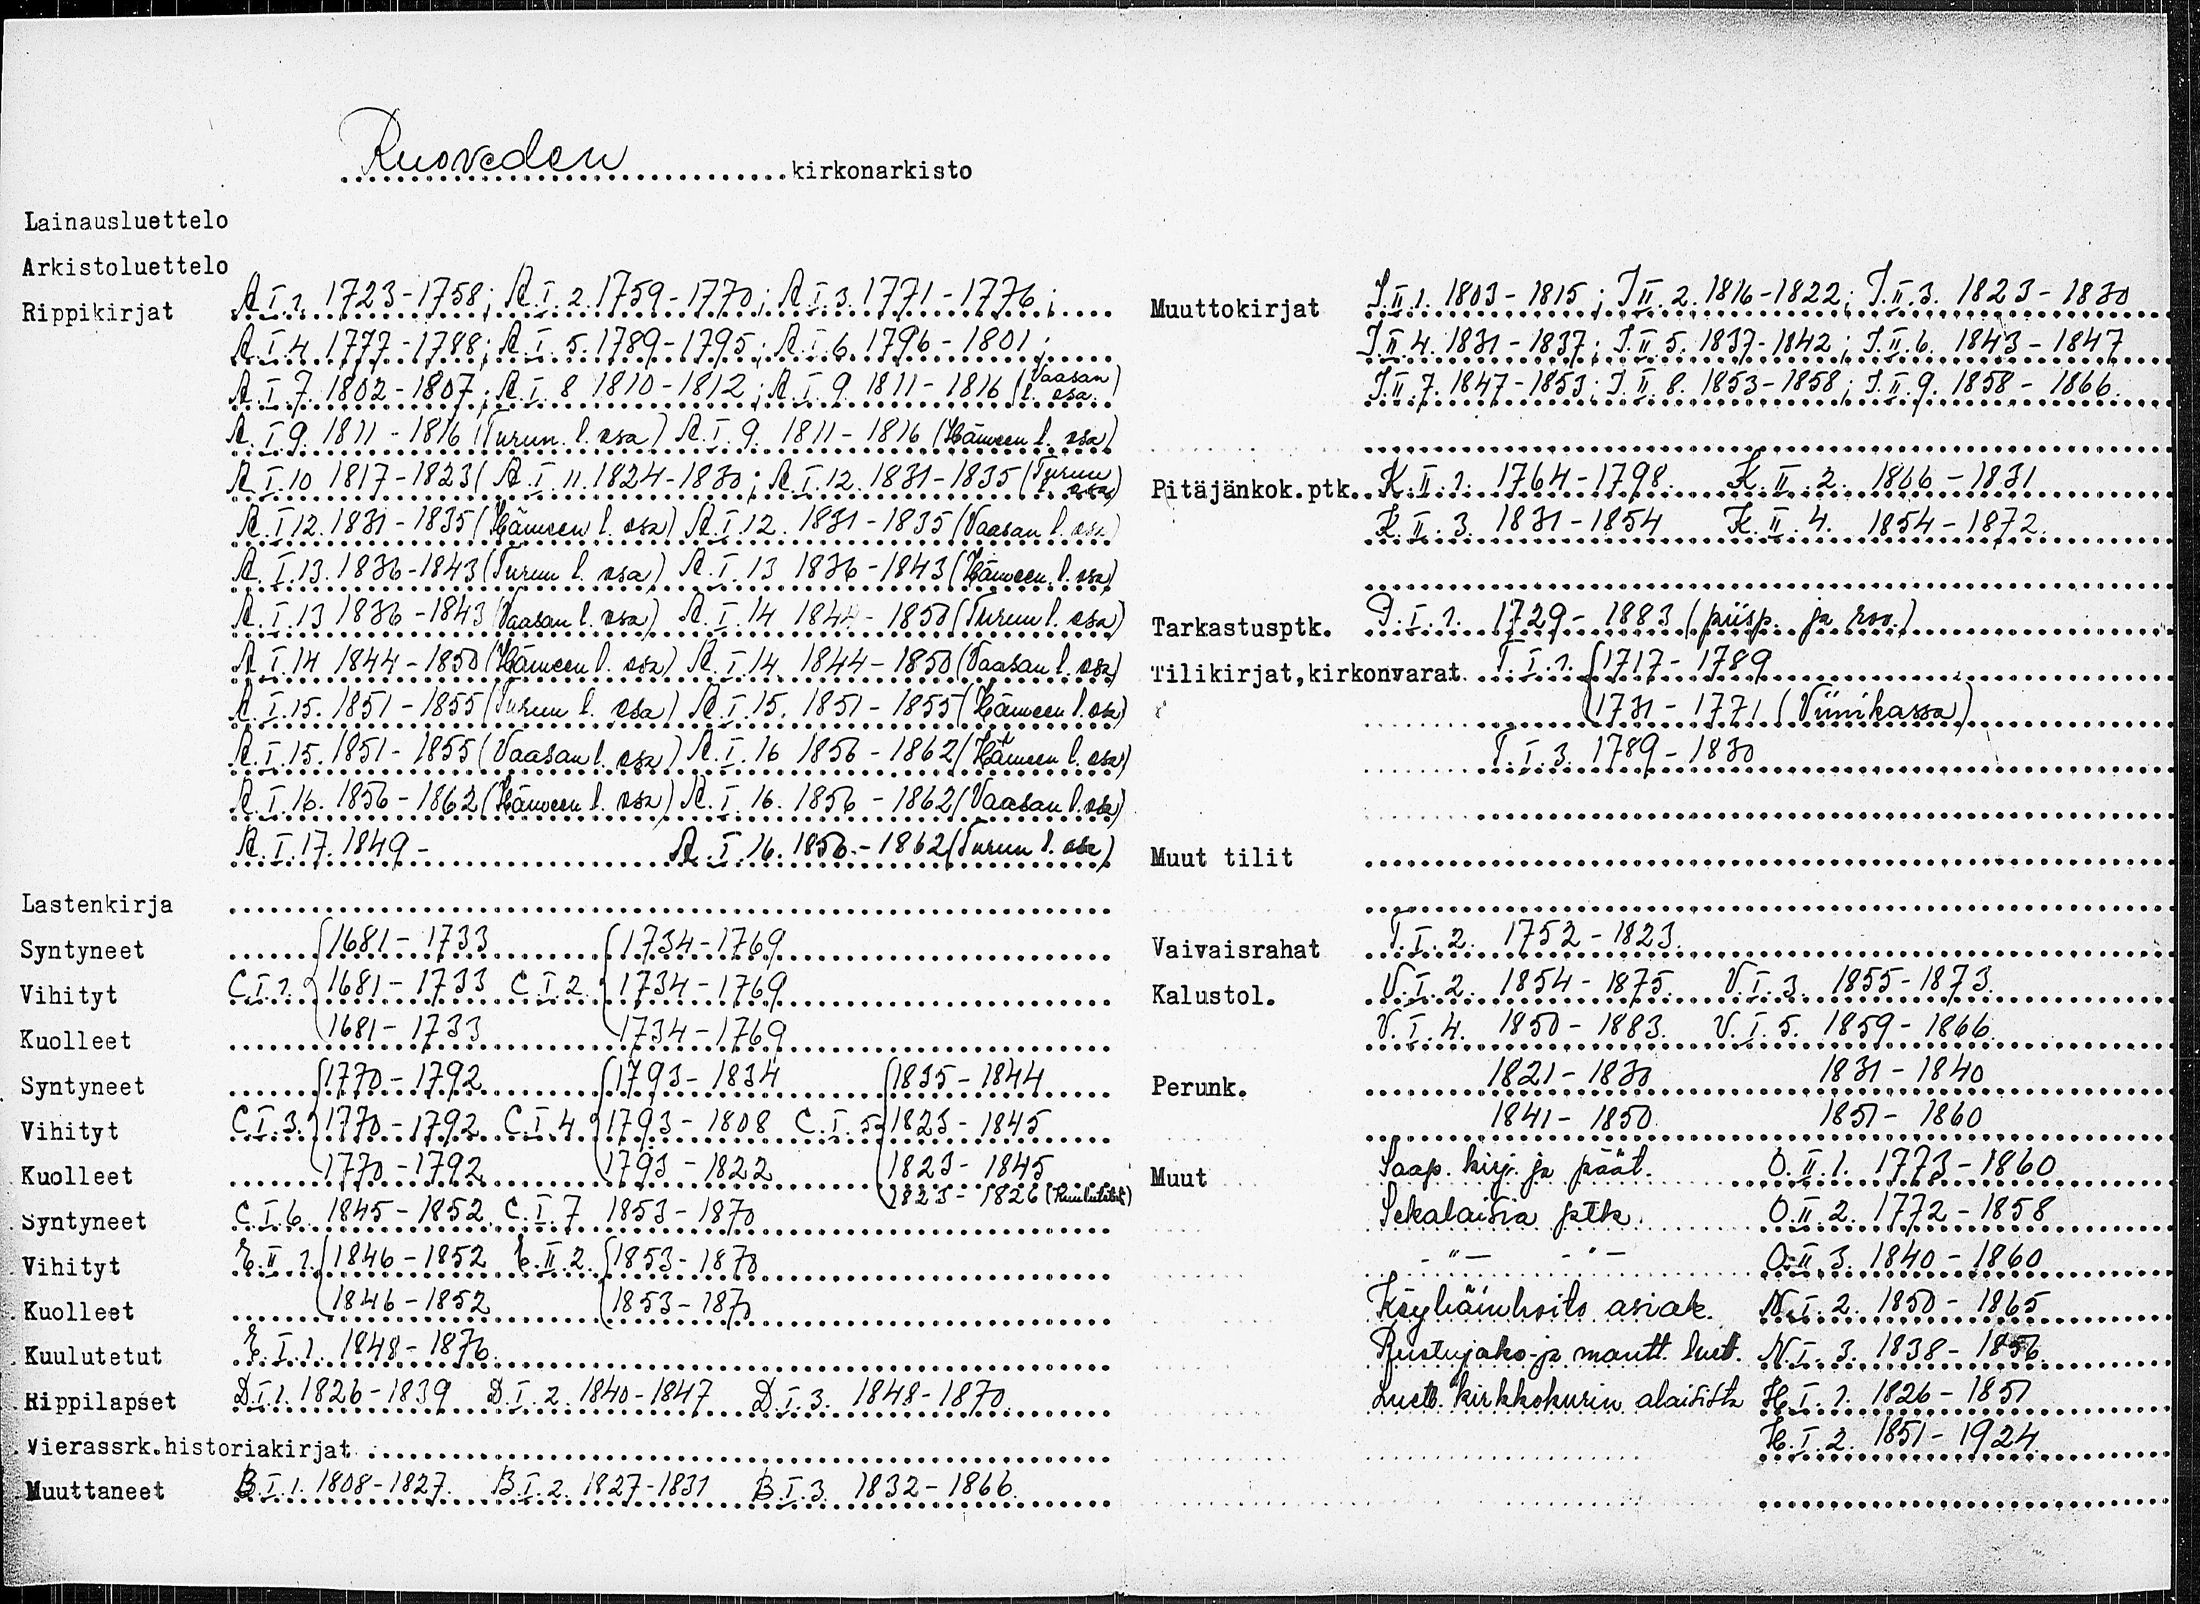 Ruoveden kirkonarkisto
Lainausluettelo
Arkistoluettelo
Rippikirjat A.I.1. 1723-1758; A.I.2. 1759-1770; A.I.3. 1771-1776;
A.I.4 1777-1788; A.I.5. 1789-1795; A.I.6. 1796-1801;
A.I.7. 1802-1807; A.I.8 1810-1812; A.I.9. 1811-1816 (Vaasan l. osa)
A.I.9. 1811-1816 (Turun l. osa) A.I.9. 1811-1816 (Hämeen l. osa)
A.I.10 1817-1823( A.I.11. 1824-1830; A.I.12. 1831-1835 (Turun l. osa)
A.I.12. 1831-1835 (Hämeen l. osa) A.I.12. 1831-1835 (Vaasan l. osa)
A.I.13. 1836-1843 (Turun l. osa) A.I.13 1836-1843 (Hämeen l. osa)
A.I.13 1836-1843 (Vaasan l. osa) A.I.14 1844-1850 (Turun l. osa)
A.I.14 1844-1850 (Hämeen l. osa) A.I.14. 1844-1850 (Vaasan l. osa)
A.I.15. 1851-1855 (Turun l. osa) A.I.15. 1851-1855 (Hämeen l. osa)
A.I.15. 1851-1855 (Vaasan l. osa) A.I.16 1856-1862 (Hämeen l. osa)
A.I.16. 1856-1862 (Hämeen l. osa) A.I.16. 1856-1862 (Vaasan l. osa)
A.I.17. 1849- A.I.16. 1856-1862 (Turun l. osa)
Lastenkirja
Syntyneet 1681-1733 1734-1769
Vihityt C.I.1. 1681-1733 C.I.2. 1734-1769
Kuolleet 1681-1733 1734-1769
Syntyneet 1770-1792 1793-1834 1835-1844
Vihityt C.I.3. 1770-1792 C.I.4. 1793-1808 C.I.5 1823-1845
Kuolleet 1770-1792 1793-1822 1823-1845
1823-1826 (kuulutetut)
Syntyneet C.I.6. 1845-1852. C.I.7 1853-1870
Vihityt E.II.1. 1846-1852 E.II.2. 1853-1870
Kuolleet 1846-1852 1853-1870
Kuulutetut E.I.1. 1848-1876.
Rippilapset D.I.1. 1826-1839 D.I.2. 1840-1847 D.I.3. 1848-1870
Vierassrk.historiakirjat
Muuttaneet B.I.1. 1808-1827. B.I.2. 1827-1831 B.I.3. 1832-1866.
Muuttokirjat J.II.1. 1803-1815; J.II.2. 1816-1822; J.II.3. 1823-1830
J.II.4. 1831-1837; J.II.5. 1837-1842; J.II.6. 1843-1847
J.II.7. 1847-1853; J.II.8. 1853-1858; J.II.9. 1858-1866.
Pitäjänkok.ptk. K.II.1. 1764-1798. K.II.2. 1806-1831
K.II.3. 1831-1854 K.II.4. 1854-1872.
Tarkastusptk. P.I.1. 1729-1883 (piisp. ja rov.)
Tilikirjat,kirkonvarat T.I.1. 1717-1789
1731-1771 (Viinikassa)
T.I.3. 1789-1830
Muut tilit
Vaivaisrahat T.I.2. 1752-1823.
Kalustol. V.I.2. 1854-1875. V.I.3. 1855-1873.
V.I.4. 1850-1883. V.I.5. 1859-1866.
Perunk. 1821-1830 1831-1840
1841-1850. 1851-1860
Muut Saap. kirj. ja päät. O.II.1. 1773-1860
Sekalaisia ptk. O.II.2. 1772-1858
-"- -"- O.II.3. 1840-1860
Köyhäinhoito asiak. N.I.2. 1850-1865
Ruotujako- ja mantt. luet. N.I.3. 1838-1856.
Luett. kirkkokurin alaisista H.I.1. 1826-1851
H.I.2. 1851-1924.